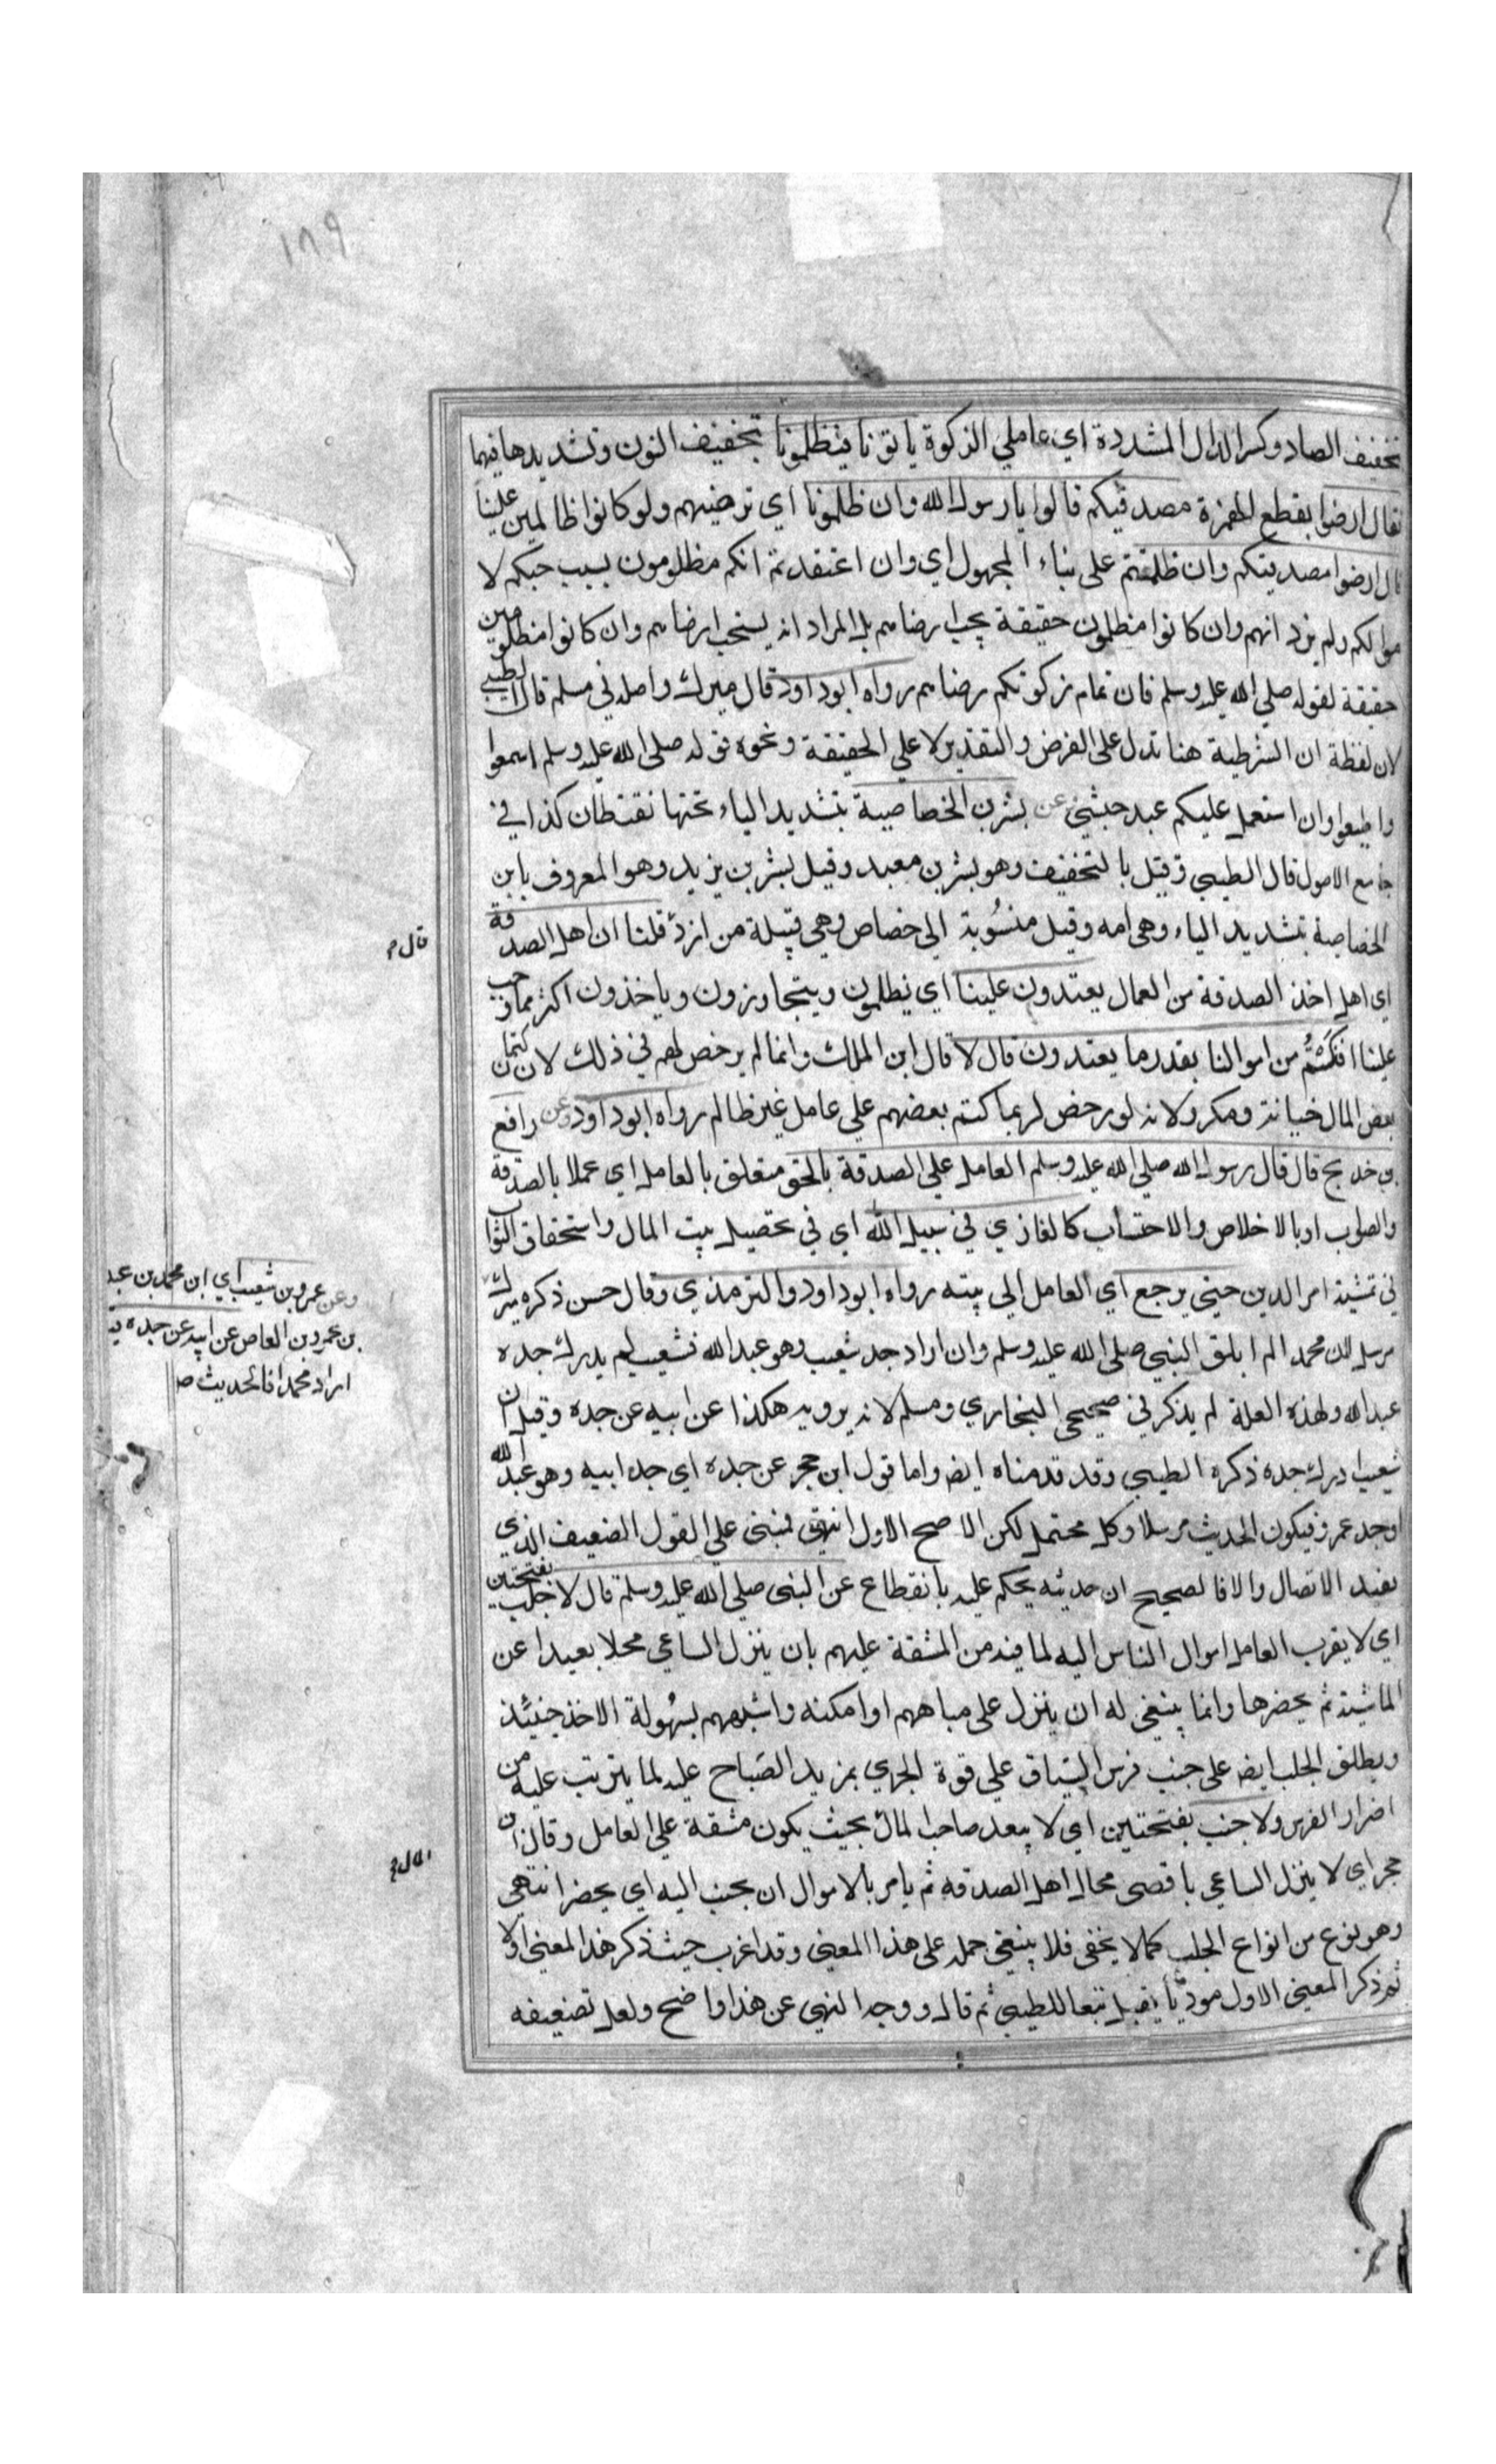 ١٨٩
بخفيف الصاد وكسر الدال المشددة اي عاملي الزكوة ياتونا فيظلمونا بتخفيف النون وتشديدها فيهما
فقال ارضوا بقطع الهمزة مصدقيكم قالوا يا رسول الله وان ظلمونا اي نرضيهم ولو كانوا ظالمين علينا
قال ارضوا مصدقيكم وان ظلمتم على بناء المجهول اي وان اعتقدتم انكم مظلومون بسبب حبكم لا
موالكم ولم يرد انهم وان كانوا مظلومين حقيقة يجب ارضاهم بل المراد انه يستحب ارضاهم وان كانوا مظلومين
حقيقة لقوله صلى الله عليه وسلم فان تمام زكوتكم رضاهم رواه ابو داود قال ميرك واصله في مسلم قال الطيبي
لان لفظة ان الشرطية هنا تدل على الفرض والتقدير لا على الحقيقة ونحوه قوله صلى الله عليه وسلم اسمعوا
واطيعوا وان استعمل عليكم عبد حبشي وعن بشر بن الخصاصية بتشديد الياء تحتها نقطتان كذا في
جامع الاصول قال الطيبي وقيل بالتخفيف وهو بشر بن معبد وقيل بشر بن يزيد وهو المعروف بابن
الخصاصية بتشديد الياء وهي امه وقيل منسوبة الى خصاص وهي قبيلة من ازد قلنا ان اهل الصدقة
قال
اي اهل اخذ الصدقة من العمال يعتدون علينا اي يظلمون ويتجاوزون وياخذون اكثر مما وجب
علينا افنكتم من اموالنا بقدر ما يعتدون قال لا قال ابن الملك وانما لم يرخص لهم في ذلك لان كتمان
بعض المال خيانة ومكر ولانه لو رخص لربما كتم بعضهم على عامل غير ظالم رواه ابو داود وعن رافع
بن خديج قال قال رسول الله صلى الله عليه وسلم العامل على الصدقة بالحق متعلق بالعامل اي عملا بالصدقة
والصواب او بالاخلاص والاحتساب كالغازي في سبيل الله اي في تحصيل بيت المال واستحقاق الثواب
في تمشية امر الدين حتى يرجع اي العامل الى بيته رواه ابو داود والترمذي وقال حسن ذكره ميرك
وعن عمرو بن شعيب اي ابن محمد بن عبد
بن عمرو بن العاص عن ابيه عن جده
اراد محمدا فالحديث
مرسل لان محمدا لم يلق النبي صلى الله عليه وسلم وان اراد جد شعيب وهو عبد الله فشعيب لم يدرك جده
عبد الله ولهذه العلة لم يذكر في صحيحي البخاري ومسلم لانه يرويه هكذا عن ابيه عن جده وقيل ان
شعيبا ادرك جده ذكره الطيبي وقد قدمناه ايض واما قول ابن حجر عن جده اي جد ابيه وهو عبد الله
او جد عمرو فيكون الحديث مرسلا وكل محتمل لكن الاصح الاول انتهى فمبني على القول الضعيف الذي
يفيد الاتصال والا فالصحيح ان حديثه يحكم عليه بانقطاع عن النبي صلى الله عليه وسلم قال لا جلب بفتحتين
اي لا يقرب العامل اموال الناس اليه لما فيه من المشقة عليهم بان ينزل الساعي محلا بعيدا عن
الماشية ثم يحضرها وانما ينبغي له ان ينزل على مياههم او امكنه واشبههم بسهولة الاخذ حينئذ
ويطلق الجلب ايض على جنب فرس السباق على قوة الجري بمزيد الصياح عليه لما يترتب عليه من
اضرار الفرس ولا جنب بفتحتين اي لا يبعد صاحب المال بحيث يكون مشقة على العامل وقال ابن
حجر اي لا ينزل الساعي باقصى محال اهل الصدقة ثم يامر بالاموال ان يجنب اليه اي يحضر انتهى
وهو نوع من انواع الجلب كما لا يخفى فلا ينبغي حمله على هذا المعنى وقد اغرب حيث ذكر هذا المعنى اولا
ثم ذكر المعنى الاول موديا بقيل تبعا للطيبي ثم قال ووجه النهي عن هذا واضح ولعل تضعيفه